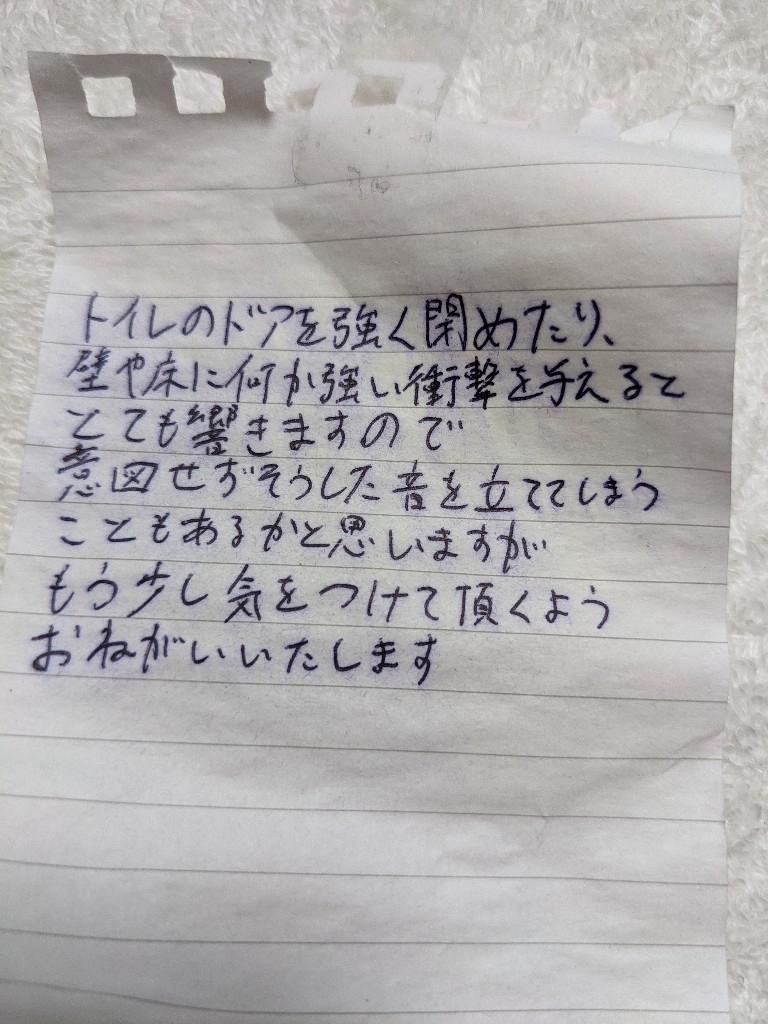 トイレのドアを強く閉めたり、
壁や床に何か強い衝撃を与えると
とても響きますので
意図せずそうした音を立ててしまう
こともあるかと思いますが
もう少し気をつけて頂くよう
おねがいいたします